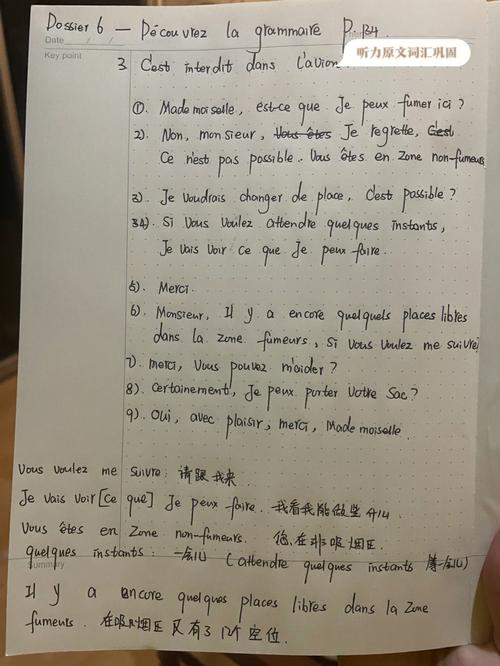 Dossier 6 — Découvrez la grammaire P. 134
Date / /
听力原文词汇巩固
Key point
3 C'est interdit dans l'avion
①. Mademoiselle, est-ce que Je peux fumer ici ?
2). Non, monsieur, Vous êtes Je regrette, C'est
Ce n'est pas possible. Vous êtes en Zone non-fumeurs
3). Je voudrais changer de place, C'est possible ?
34). Si vous voulez attendre quelques instants,
Je vais voir ce que Je peux faire.
5). Merci.
6). Monsieur, Il y a encore quelquels places libres
dans la zone fumeurs, si vous voulez me suivre
7). merci, Vous pouvez m'aider ?
8). Certainement, Je peux porter votre Sac ?
9). Oui, avec plaisir, merci, Mademoiselle.
Vous voulez me suivre : 请跟我来
Je vais voir [ce que] Je peux faire. 我看我能做些什么
Vous êtes en Zone non-fumeurs. 您在非吸烟区.
quelques instants : 一会儿 (attendre quelques instants 等一会儿)
Summary
Il y a encore quelques places libres dans la Zone
fumeurs. 在吸烟区又有了几个空位.